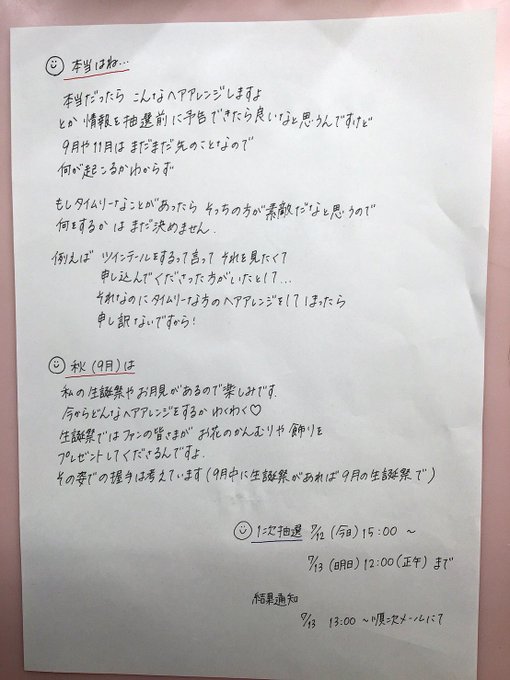 本当はね...
本当だったら こんなヘアアレンジしますよ
とか 情報を抽選前に予告できたら良いなと思うんですけど
9月や11月は まだまだ先のことなので
何が起こるかわからず
もしタイムリーなことがあったら そっちの方が素敵だなと思うので
何をするか は まだ決めません.
例えば ツインテールをするって言って それを見たくて
申し込んでくださった方がいたとして...
それなのにタイムリーな方のヘアアレンジをしてしまったら
申し訳ないですから!
秋(9月)は
私の生誕祭やお月見があるので楽しみです.
今からどんなヘアアレンジをするか わくわく♡
生誕祭ではファンの皆さまが お花のかんむりや飾りを
プレゼントしてくださるんですよ.
その姿での握手は考えています(9月中に生誕祭があれば9月の生誕祭で)
1次抽選 7/12 (今日)15:00 ~
7/13 (明日)12:00(正午)まで
結果通知
7/13 13:00 ~順次メールにて